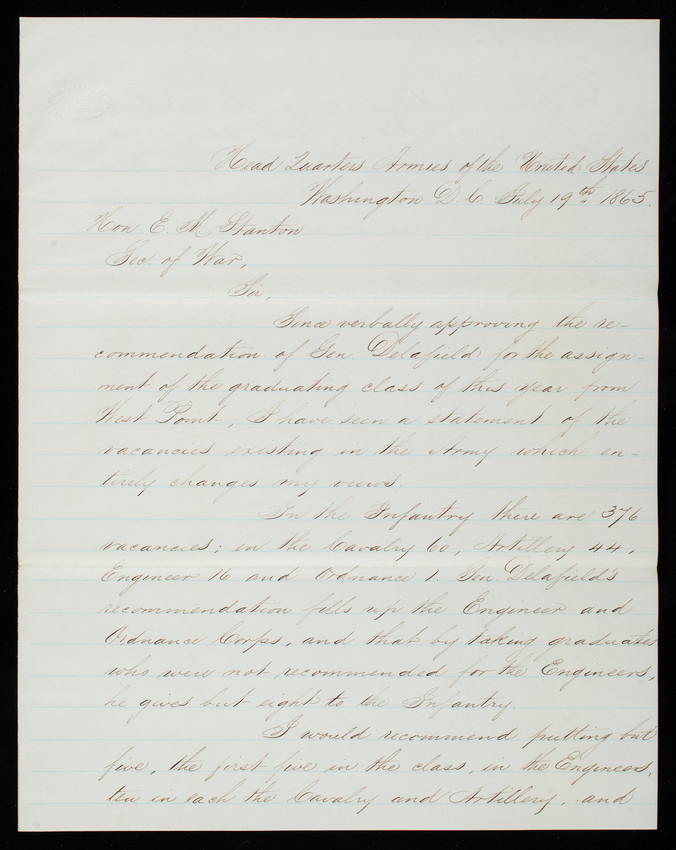 Head Quarters Armies of the United States
Washington D. C. July 19th 1865.
Hon E. M. Stanton
Sec. of War,
Sir,
Since verbally approving the re-
commendation of Gen. Delafield for the assign-
ment of the graduating class of this year from
West Point, I have seen a statement of the
vacancies existing in the Army which en-
tirely changes my views.
In the Infantry there are 376
vacancies; in the Cavalry 60, Artillery 44,
Engineer 16 and Ordnance 1. Gen. Delafield's
recommendation fills up the Engineer and
Ordnance Corps, and that by taking graduates
who were not recommended for the Engineers,
he gives but eight to the Infantry.
I would recommend putting but
five, the first five in the class, in the Engineers,
ten in each the Cavalry and Artillery, and